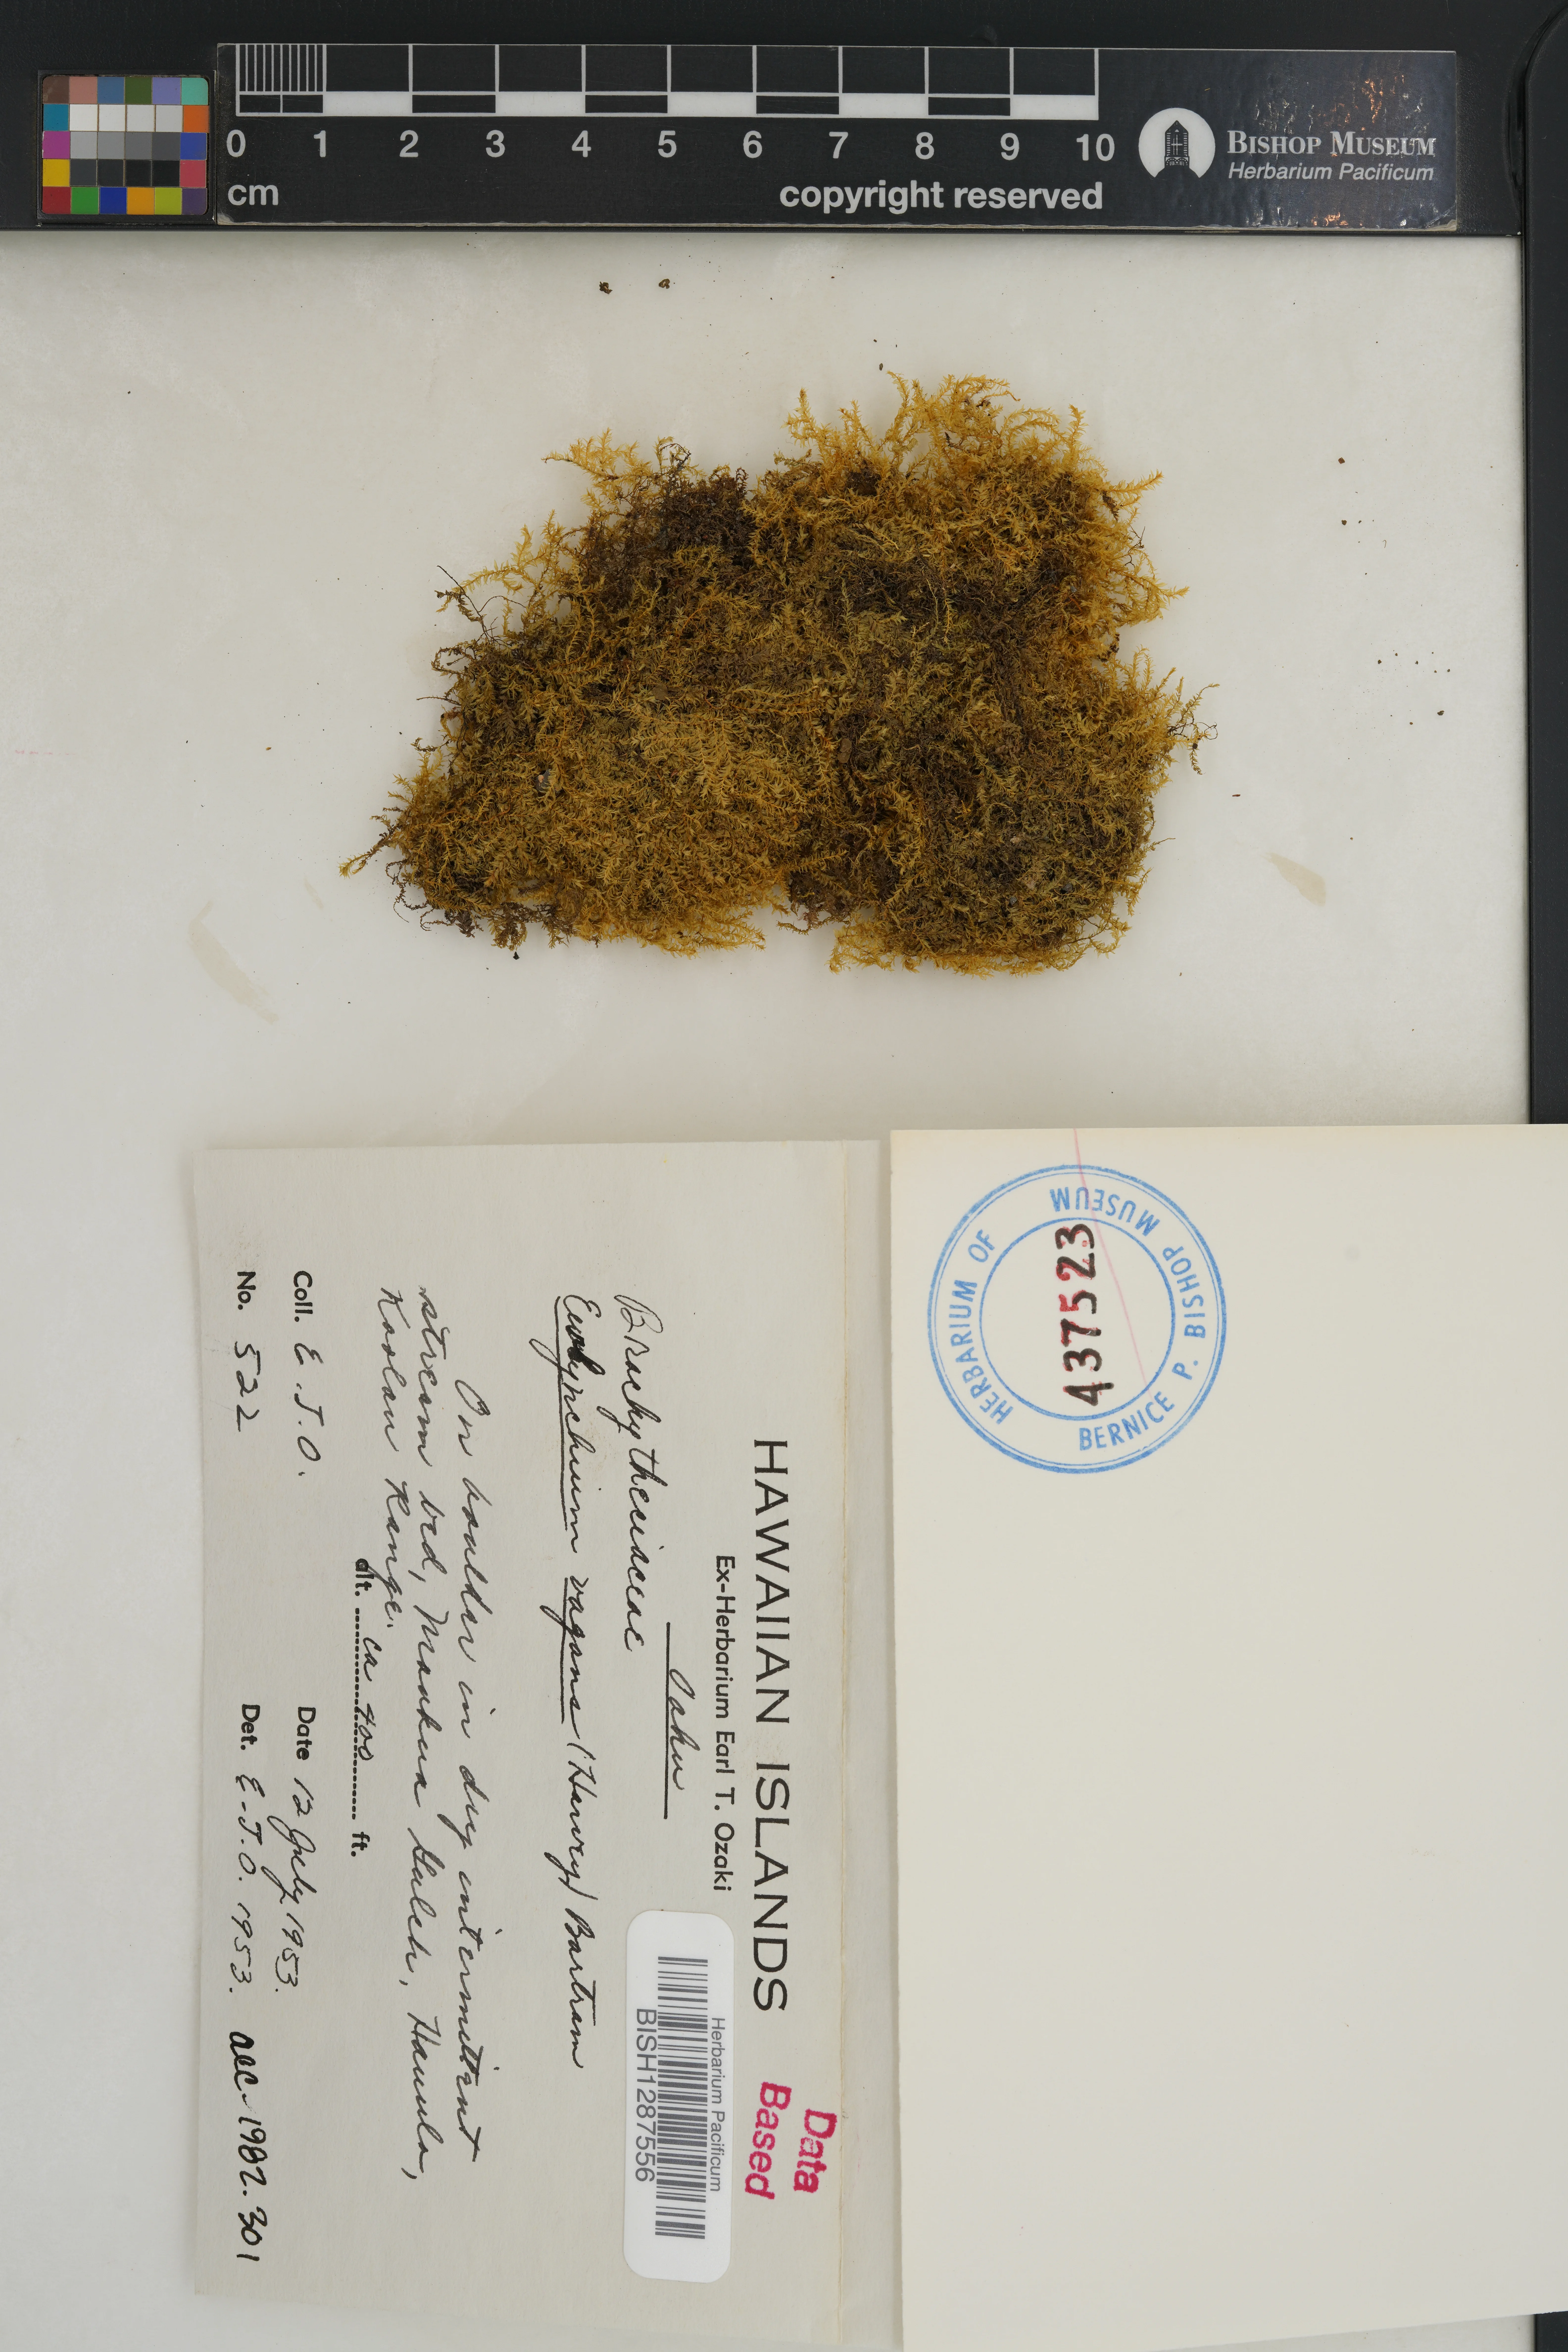 0 1 2 3 4 5 6 7 8 9 10
cm
copyright reserved
BISHOP MUSEUM
Herbarium Pacificum
HERBARIUM OF
BERNICE P. BISHOP MUSEUM
437523
Data
Based
HAWAIIAN ISLANDS
Ex-Herbarium Earl T. Ozaki
Oahu
Herbarium Pacificum
BISH1287556
Brachytheciaceae
Eurhynchium vagans (Harvey) Bartram
On boulder in dry intermittent
stream bed, Maakua Gulch, Hauula,
Koolau Range.
alt. ca 400 ft.
Coll. E.T.O. Date 12 July 1953.
No. 522 Det. E.T.O. 1953. acc. 1982.301